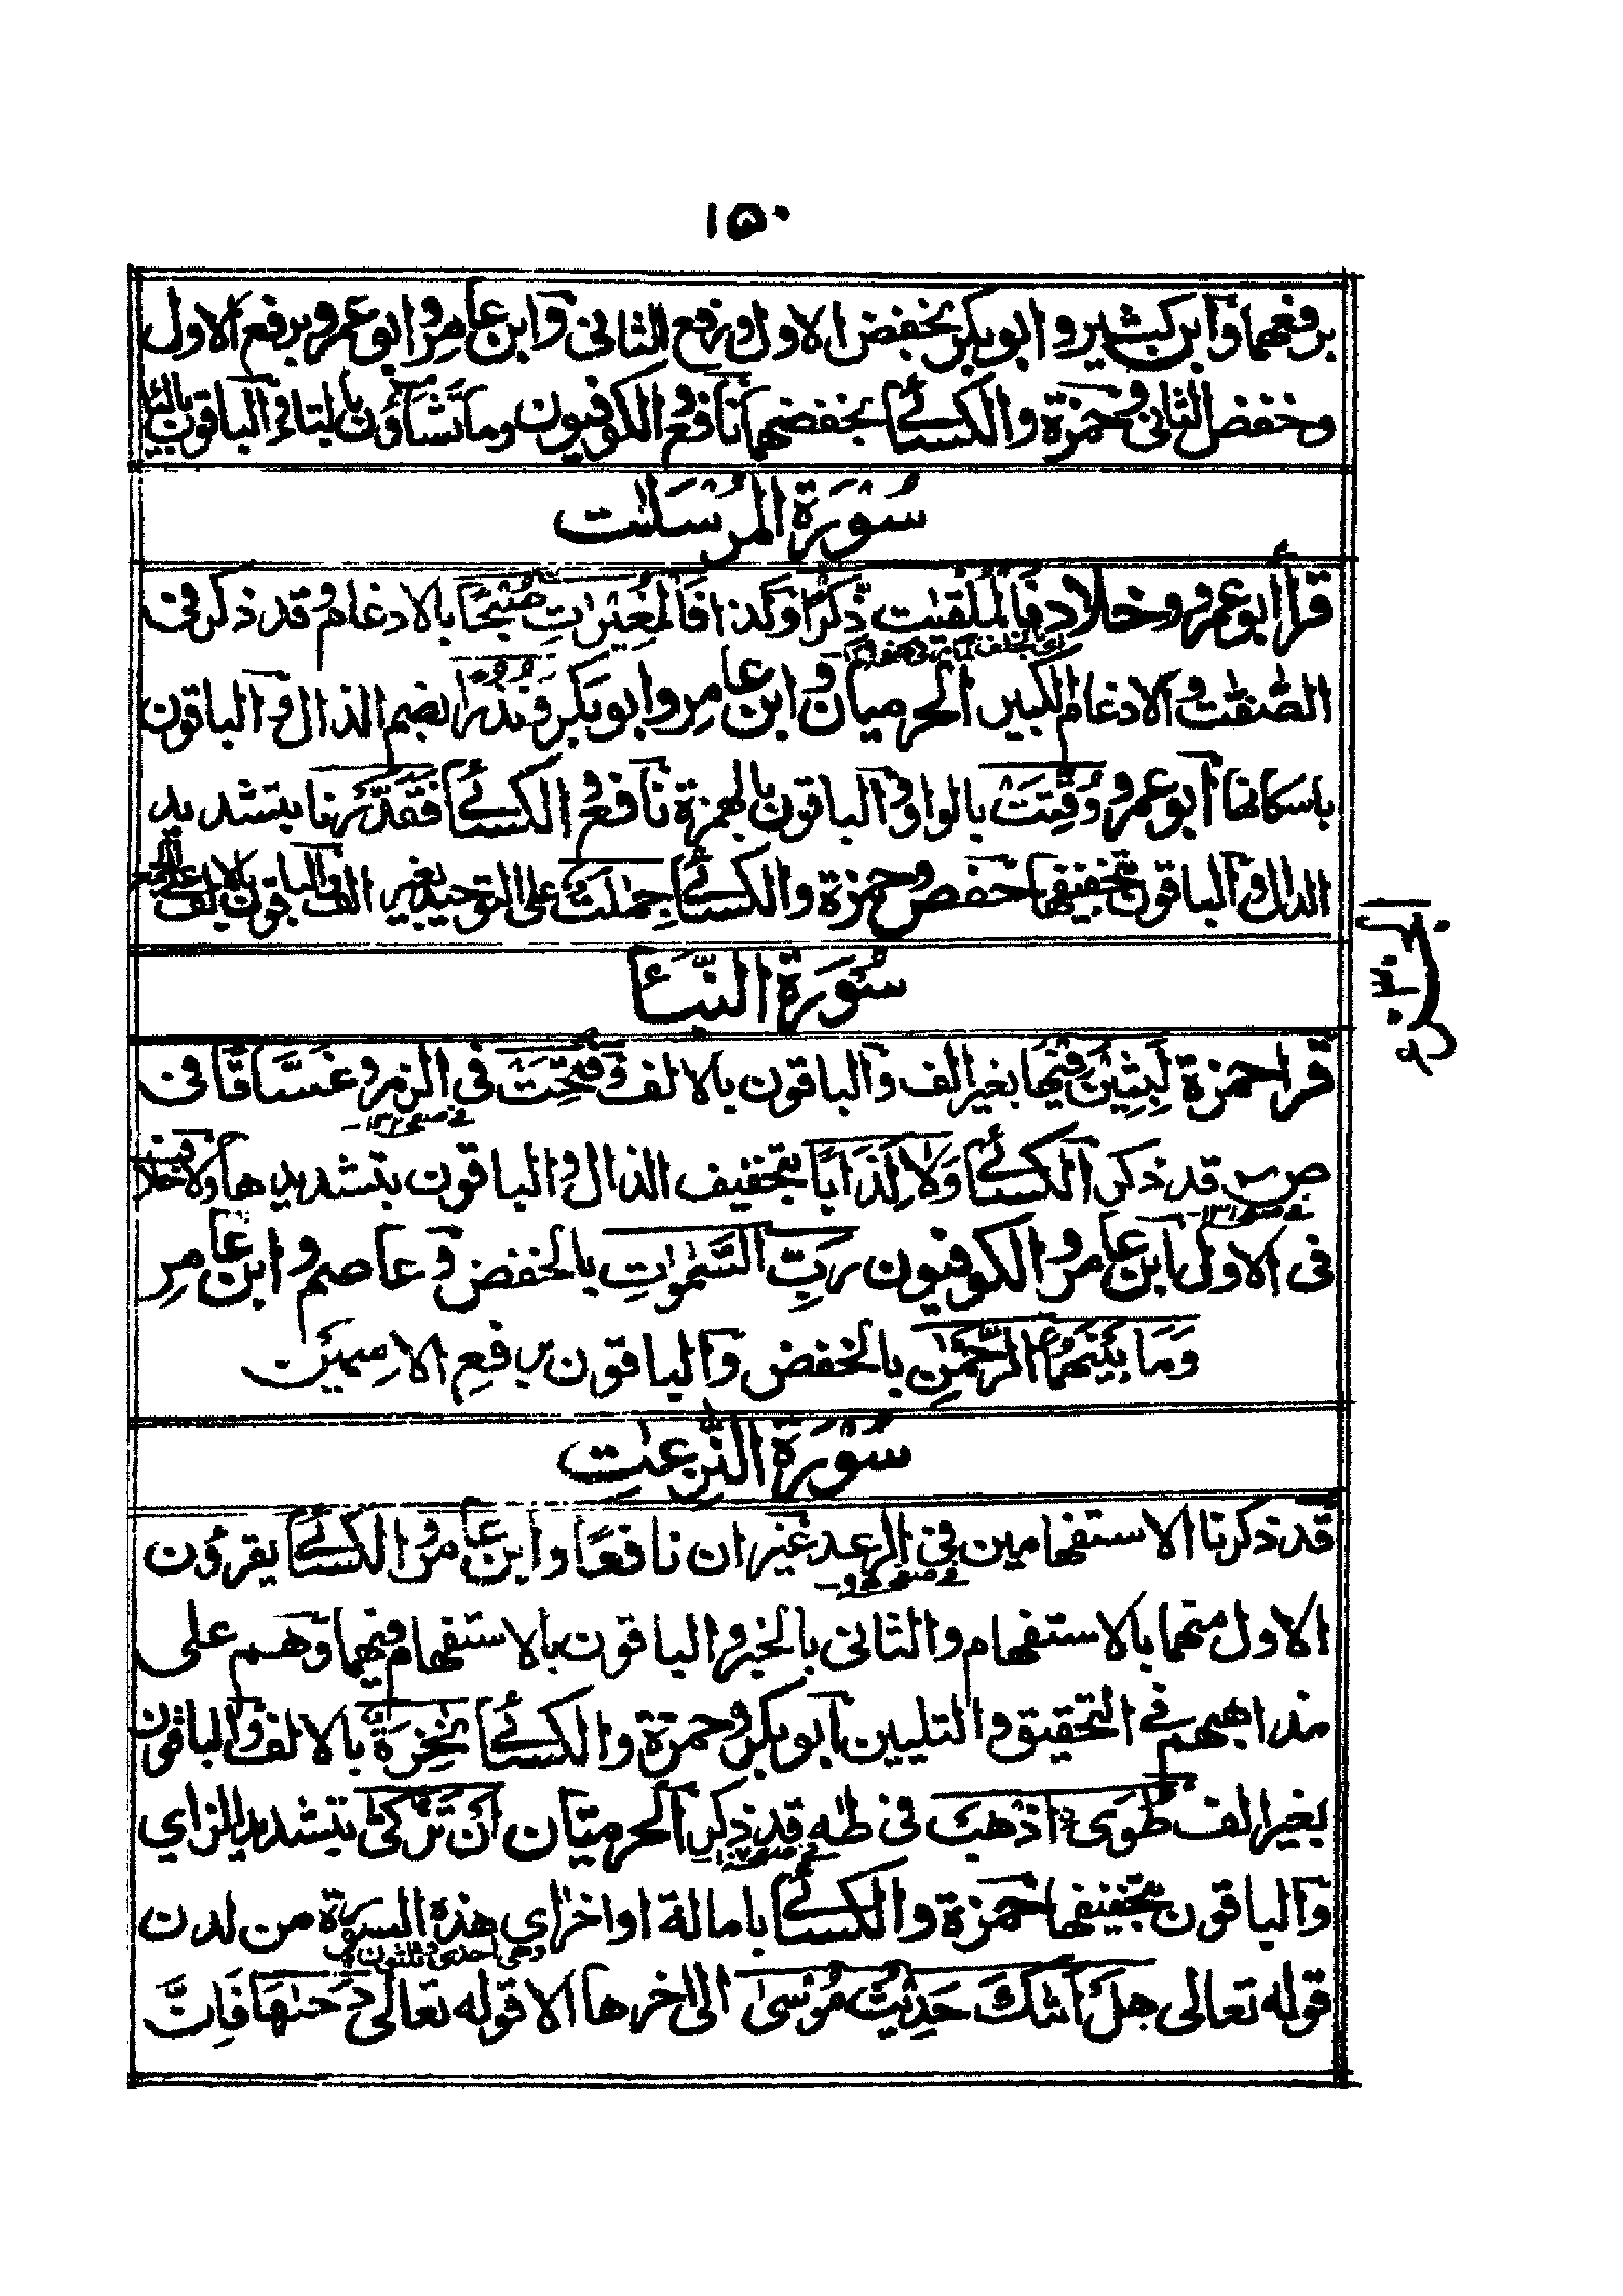 ١٥٠
برفعهما وابن كثير وابو بكر بخفض الاول ورفع الثانى وابن عامر وابو عمرو برفع الاول
وخفض الثانى وحمزة والكسائى بخفضهما نافع والكوفيون وما تشاءون بالتاء والباقون بالياء
سُوْرَة المرسَلٰت
قرأ ابو عمرو وخلاد فالملقيٰت ذِّكرًا وكذا فالمغيرٰتِ صُّبْحًا بالادغام وقد ذكر فى
الصّٰفّٰت والادغام الكبير الحرميان وابن عامر وابو بكر او نُذُرًا بضم الذال والباقون
باسكانها ابو عمرو وُقِّتَتْ بالواو والباقون بالهمزة نافع والكسائى فَقَدَّرْنا بتشديد
الدال والباقون بتخفيفها حفص وحمزة والكسائى جِمٰلَتٌ على التوحيد بغير الف والباقون بالالف على الجمع
سُوْرَة النَّبَأ
قرا حمزة لَبِثِيْنَ فِيْهَا بغير الف والباقون بالالف وَفُتِحَتْ فى الزمر وغَسَّاقًا فى
فى صفحہ ١٣٢
صٓ قد ذكر الكسائى وَلَا كِذَابًا بتخفيف الذال والباقون بتشديدها ولا خلاف
فى صفحہ ١٣١
فى الاول ابن عامر والكوفيون رَبِّ السَّمٰوٰتِ بالخفض وعاصم وابن عامر
وَمَا بَيْنَهُمَا الرَّحْمٰنِ بالخفض والباقون برفع الاسمين
سُوْرَة النّٰزِعٰتِ
قد ذكرنا الاستفهامين فى الرعد غير ان نافعًا وابن عامر والكسائى يقرؤن
الاول منهما بالاستفهام والثانى بالخبر والباقون بالاستفهام فيهما وهم على
مذاهبهم فى التحقيق والتليين ابو بكر وحمزة والكسائى نٰخِرَةً بالالف والباقون
بغير الف طُوًى اذْهَبْ فى طٰه قد ذكر الحرميّان اَنْ تَزَّكّٰى بتشديد الزاي
فى صفحہ ١٠٧
والباقون بتخفيفها حمزة والكسائى بامالة اواخر اٰى هذه السورة من لدن
وهى احدى وثلثون
قوله تعالى هَلْ اَتٰىكَ حَدِيْثُ مُوْسٰى الى اخرها الا قوله تعالى دَحٰىهَا فَاِنَّ